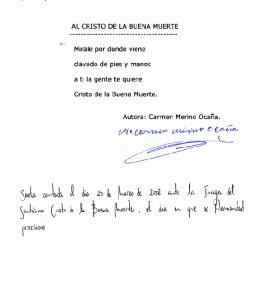 AL CRISTO DE LA BUENA MUERTE
Mirale por donde viene
clavado de pies y manos
a ti la gente te quiere
Cristo de la Buena Muerte.
Autora: Carmen Merino Ocaña.
Mª Carmen Merino Ocaña
Saeta cantada el día 25 de Marzo de 2002 ante la Imagen del
Santísimo Cristo de la Buena Muerte, el día en que su Hermandad
procesiona